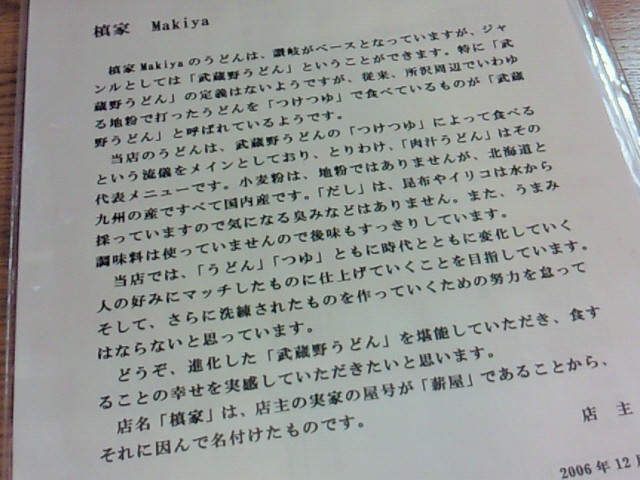 槙家 Makiya
槙家 Makiyaのうどんは、讃岐がベースとなっていますが、ジャ
ンルとしては「武蔵野うどん」ということができます。特に「武
蔵野うどん」の定義はないようですが、従来、所沢周辺でいわゆ
る地粉で打ったうどんを「つけつゆ」で食べているものが「武蔵
野うどん」と呼ばれているようです。
当店のうどんは、武蔵野うどんの「つけつゆ」によって食べる
という流儀をメインとしており、とりわけ、「肉汁うどん」はその
代表メニューです。小麦粉は、地粉ではありませんが、北海道と
九州の産ですべて国内産です。「だし」は、昆布やイリコは水から
採っていますので気になる臭みなどはありません。また、うまみ
調味料は使っていませんので後味もすっきりしています。
当店では、「うどん」「つゆ」ともに時代とともに変化していく
人の好みにマッチしたものに仕上げていくことを目指しています。
そして、さらに洗練されたものを作っていくための努力を怠って
はならないと思っています。
どうぞ、進化した「武蔵野うどん」を堪能していただき、食す
ることの幸せを実感していただきたいと思います。
店名「槙家」は、店主の実家の屋号が「薪屋」であることから、
それに因んで名付けたものです。
店 主
2006年12月